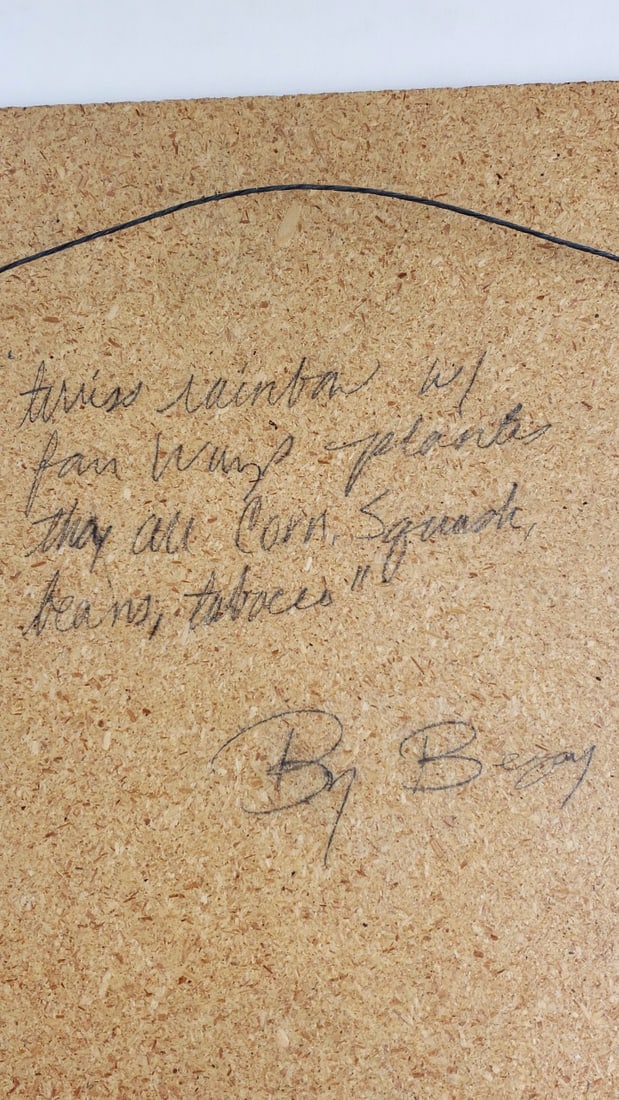 "twiss rainbow w/
four Wings plants
they are Corn, Squash,
beans, tobacco"
By Begay